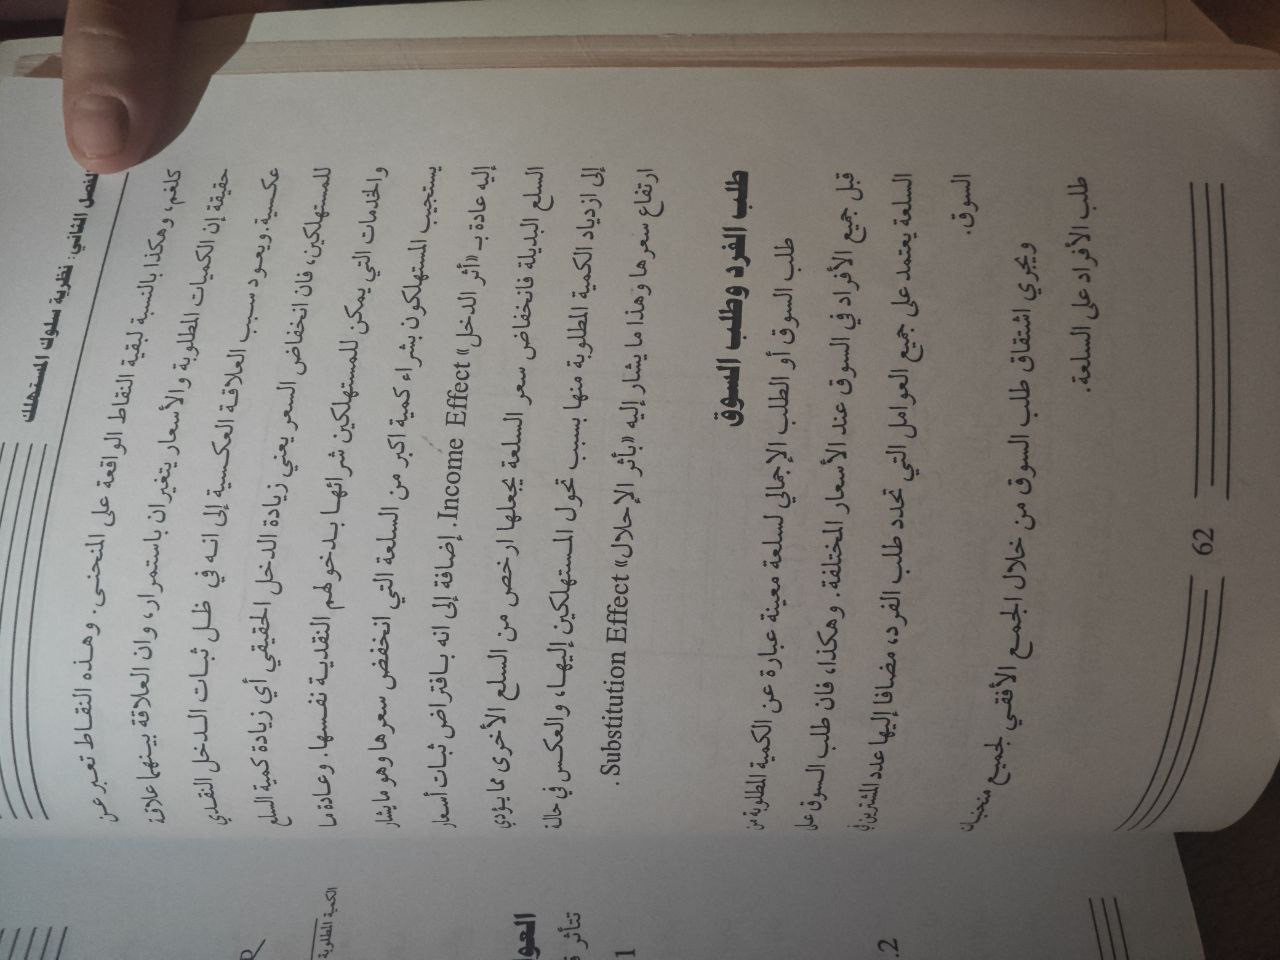 الفصل الثاني: نظرية سلوك المستهلك
كلغم، وهكذا بالنسبة لبقية النقاط الواقعة على المنحنى. وهذه النقاط تعبر عن
حقيقة إن الكميات المطلوبة والأسعار يتغيران باستمرار، وان العلاقة بينهما علاقة
عكسية. ويعود سبب العلاقة العكسية إلى انه في ظل ثبات الدخل النقدي
للمستهلكين، فان انخفاض السعر يعني زيادة الدخل الحقيقي أي زيادة كمية السلع
والخدمات التي يمكن للمستهلكين شرائها بدخولهم النقدية نفسها. وعادة ما
يستجيب المستهلكون بشراء كمية اكبر من السلعة التي انخفض سعرها وهو ما يشار
إليه عادة بـ «أثر الدخل» Income Effect. إضافة إلى انه بافتراض ثبات أسعار
السلع البديلة فانخفاض سعر السلعة يجعلها ارخص من السلع الأخرى مما يؤدي
إلى ازدياد الكمية المطلوبة منها بسبب تحول المستهلكين إليها، والعكس في حالة
ارتفاع سعرها وهذا ما يشار إليه «بأثر الإحلال» Substitution Effect .
طلب الفرد وطلب السوق
طلب السوق أو الطلب الإجمالي لسلعة معينة عبارة عن الكمية المطلوبة من
قبل جميع الأفراد في السوق عند الأسعار المختلفة. وهكذا، فان طلب السوق على
السلعة يعتمد على جميع العوامل التي تحدد طلب الفرد، مضافا إليها عدد المشترين في
السوق.
ويجري اشتقاق طلب السوق من خلال الجمع الأفقي لجميع منحنيات
طلب الأفراد على السلعة.
62
الكمية المطلوبة
تتأثر
1
2.